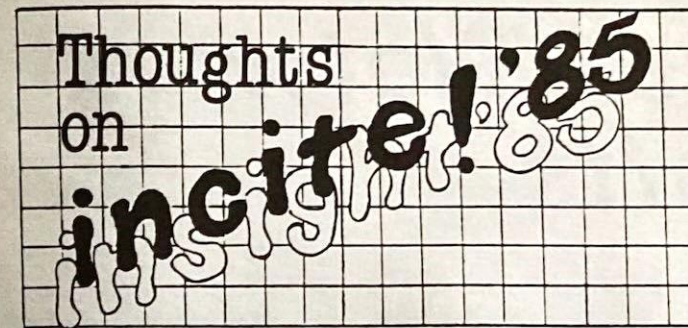 Thoughts
on
incite! '85
insight '85